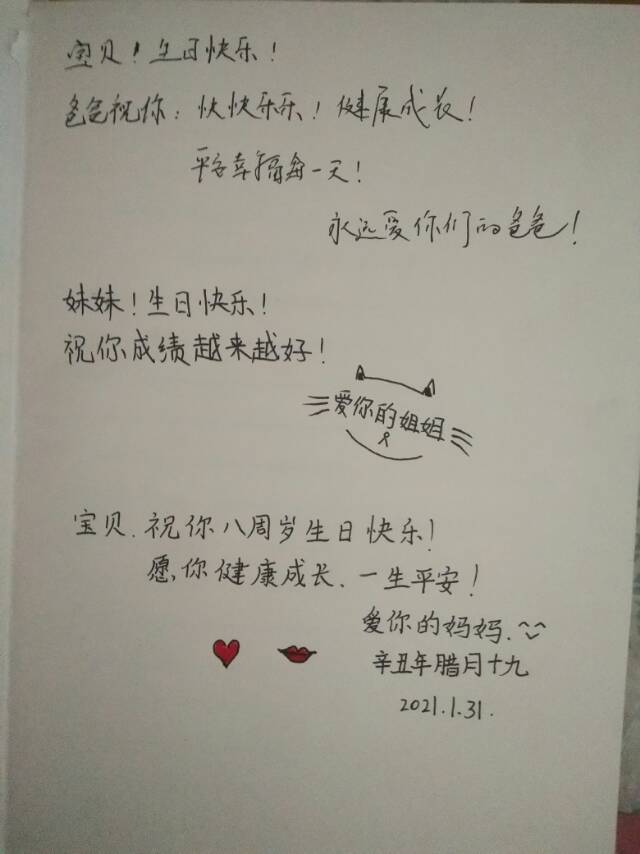 宝贝！生日快乐！
爸爸祝你：快快乐乐！健康成长！
平安幸福每一天！
永远爱你们的爸爸！
妹妹！生日快乐！
祝你成绩越来越好！
爱你的姐姐
宝贝.祝你八周岁生日快乐！
愿你健康成长、一生平安！
爱你的妈妈.
辛丑年腊月十九
2021.1.31.